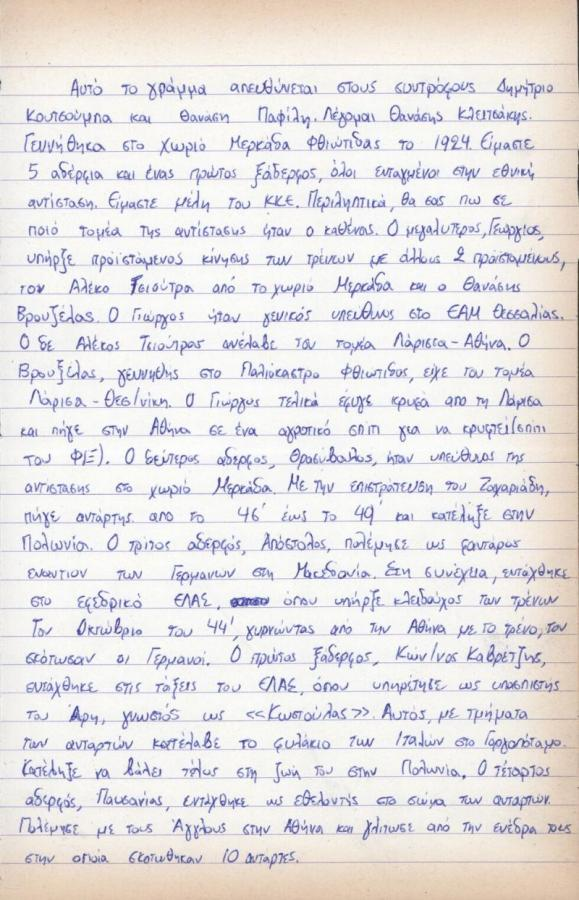 Αυτό το γράμμα απευθύνεται στους συντρόφους Δημήτριο
Κουτσούμπα και Θανάση Παφίλη. Λέγομαι Θανάσης Κλειτσάκης.
Γεννήθηκα στο χωριό Μερκάδα Φθιώτιδας το 1924. Είμαστε
5 αδέρφια και ένας πρώτος ξάδερφος, όλοι ενταγμένοι στην εθνική
αντίσταση. Είμαστε μέλη του ΚΚΕ. Περιληπτικά, θα σας πω σε
ποιό τομέα της αντίστασης ήταν ο καθένας. Ο μεγαλύτερος, Γεώργιος,
υπήρξε προϊστάμενος κίνησης των τρένων με άλλους 2 προϊσταμένους,
τον Αλέκο Τσιούτρα από το χωριό Μερκάδα και ο Θανάσης
Βρουζέλας. Ο Γιώργος ήταν γενικός υπεύθυνος στο ΕΑΜ Θεσσαλίας.
Ο δε Αλέκος Τσιούτρας ανέλαβε τον τομέα Λάρισσα-Αθήνα. Ο
Βρουξέλας, γεννηθείς στο Παλιόκαστρο Φθιωτιδος, είχε τον τομέα
Λάρισα - Θεσ/νίκη. Ο Γιώργος τελικά έφυγε κρυφά από τη Λάρισα
και πήγε στην Αθήνα σε ένα αγροτικό σπίτι για να κρυφτεί (σπίτι
του ΦΙΞ). Ο δεύτερος αδερφός, Θρασύβουλος, ήταν υπεύθυνος της
αντίστασης στο χωριό Μερκάδα. Με την επιστράτευση του Ζαχαριάδη,
πήγε αντάρτης από το 46' έως το 49' και κατέληξε στην
Πολωνία. Ο τρίτος αδερφός, Απόστολος, πολέμησε ως φαντάρος
εναντίον των Γερμανών στη Μακεδονία. Στη συνέχεια, εντάχθηκε
στο εφεδρικό ΕΛΑΣ, όπου υπήρξε κλειδούχος των τρένων
Τον Οκτώβριο του 44', γυρνώντας από την Αθήνα με το τρένο, τον
σκότωσαν οι Γερμανοί. Ο πρώτος ξάδερφος, Κων/νος Καβρέτζης,
εντάχθηκε στις τάξεις του ΕΛΑΣ, όπου υπηρέτησε ως υπασπιστής
του Άρη, γνωστός ως <<Κωστούλας>>. Αυτός, με τμήματα
των ανταρτών κατέλαβε το φυλάκιο των Ιταλών στο Γοργοπόταμο.
Κατέληξε να βάλει τέλος στη ζωή του στην Πολωνία. Ο τέταρτος
αδερφός, Παυσανίας, εντάχθηκε ως εθελοντής στο σώμα των ανταρτών.
Πολέμησε με τους Άγγλους στην Αθήνα και γλίτωσε από την ενέδρα τους
στην οποία σκοτώθηκαν 10 αντάρτες.